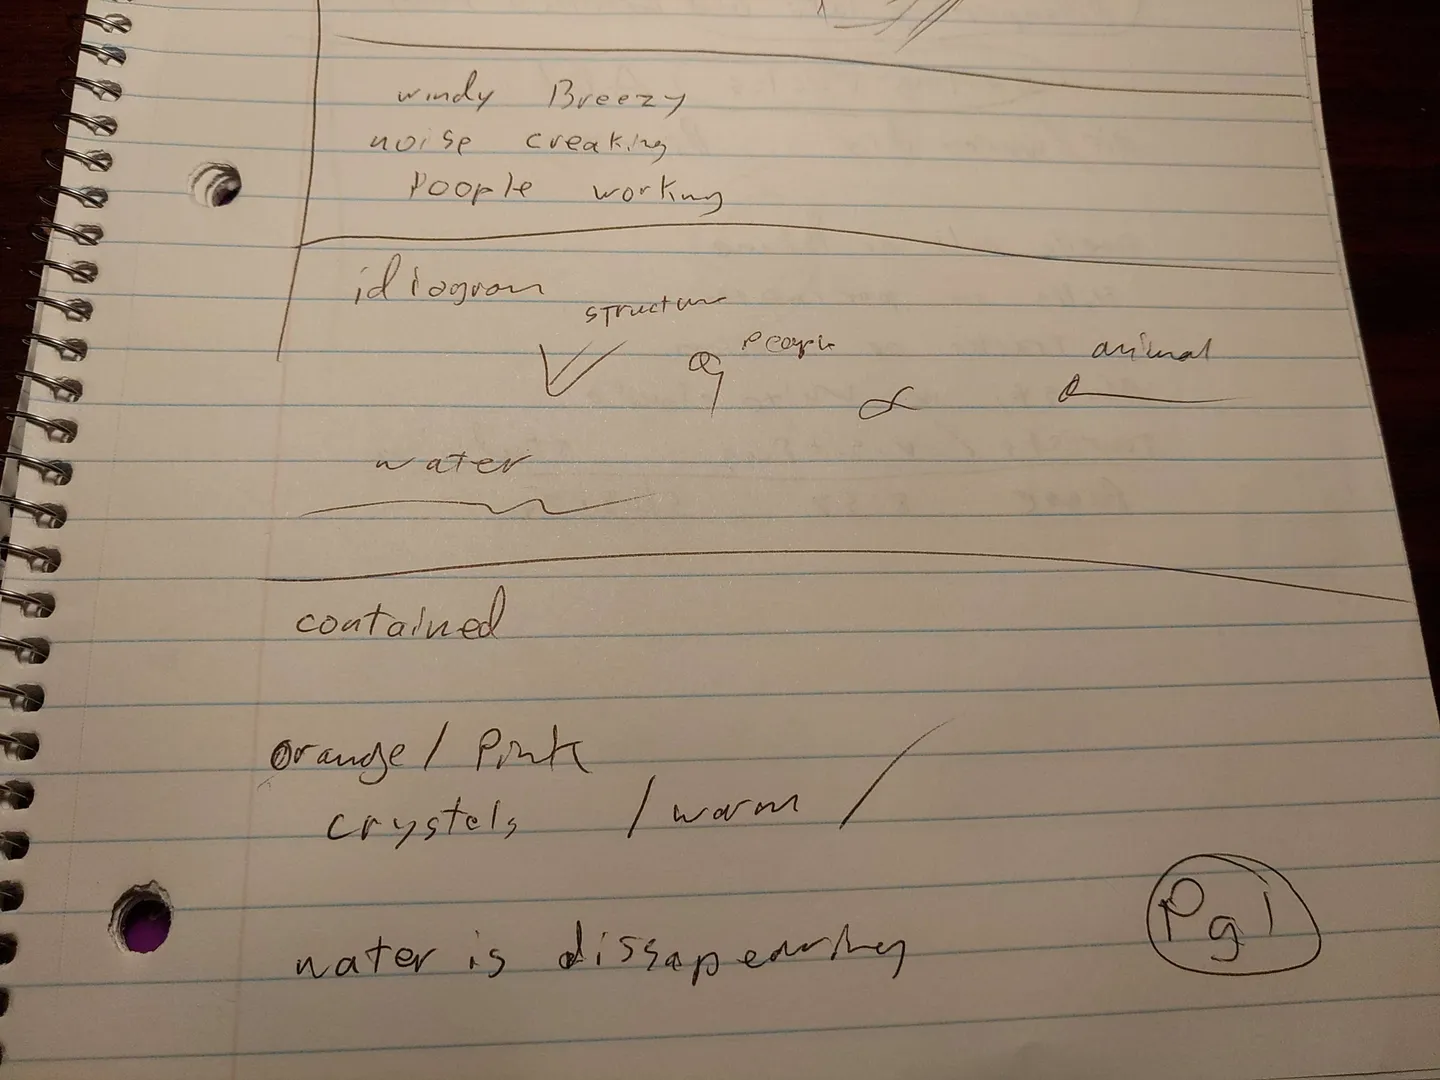 windy Breezy
noise creaking
Poople working
idiogram
structure
people
animal
water
contained
orange / Pink
crystels / warm /
water is dissapearing
Pg 1